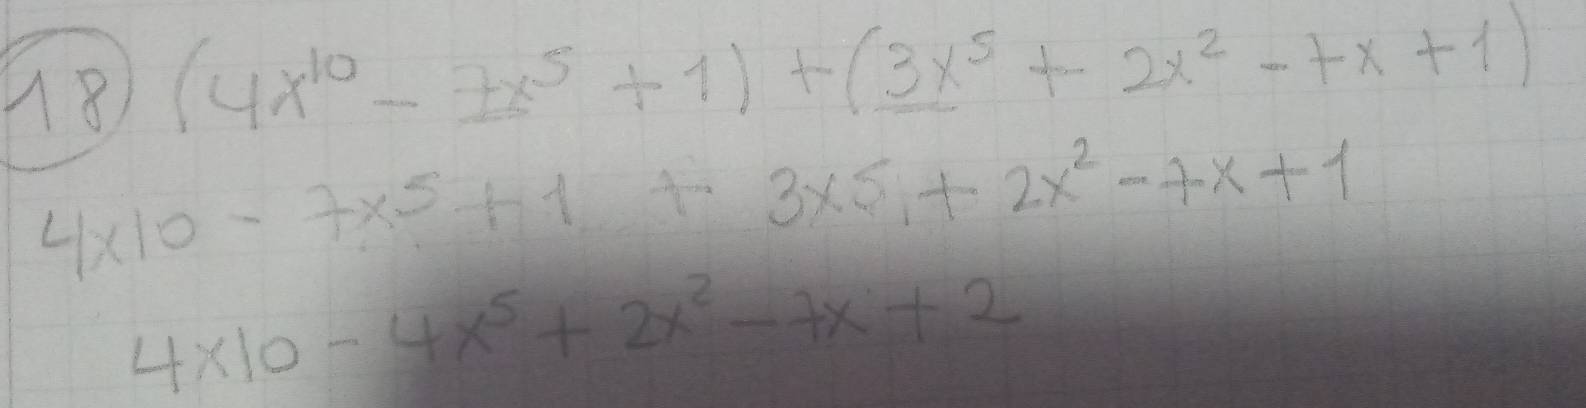 18) (4x¹⁰ - 7x⁵ + 1) + (3x⁵ + 2x² - 7x + 1)
4x10 - 7x5 + 1 + 3x5 + 2x² - 7x + 1
4x10 - 4x⁵ + 2x² - 7x + 2